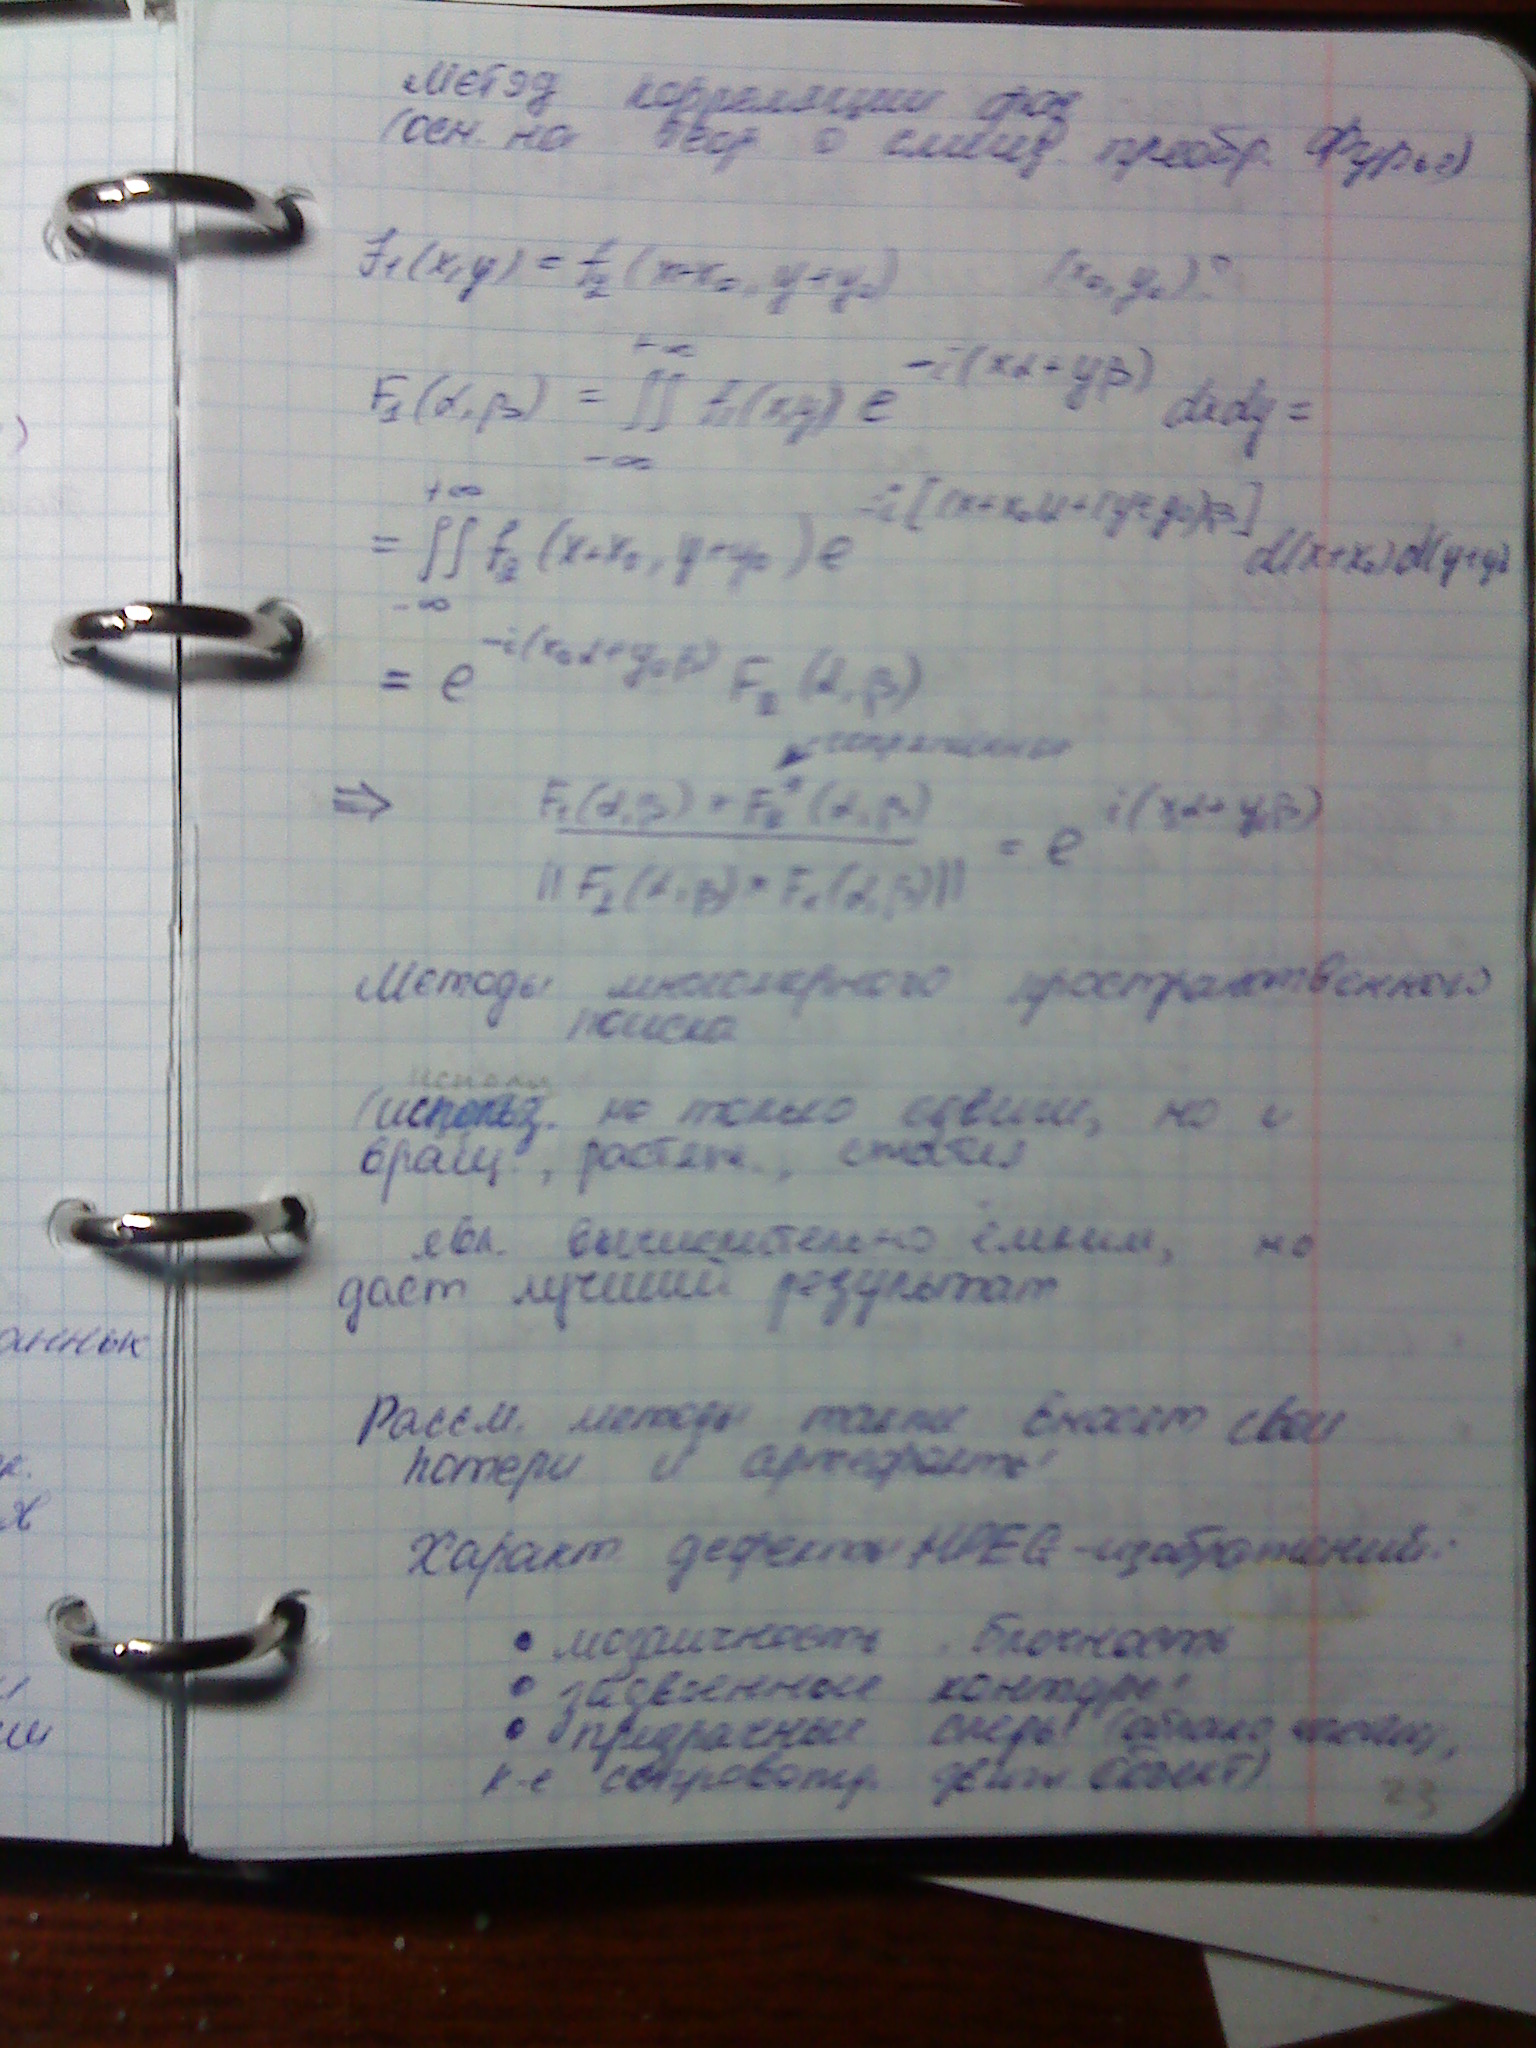 Метод корреляции фаз
(осн. на теор о смещ. преобр. Фурье)
f₁(x,y) = f₂(x+x₀, y+y₀) (x₀,y₀)?
+∞
F₁(α,β) = ∬ f₁(x,y) e^{-i(xα+yβ)} dxdy =
-∞
+∞
= ∬ f₂(x+x₀, y+y₀) e^{-i[(x+x₀)α+(y+y₀)β]} d(x+x₀)d(y+y₀)
-∞
= e^{-i(x₀α+y₀β)} F₂(α,β)
сопряженная
⇒ F₁(α,β) * F₂*(α,β) = e^{i(x₀α+y₀β)}
|| F₂(α,β) * F₁(α,β) ||
Методы многомерного пространственного
поиска
(использ. не только сдвиги, но и
вращ., растяж.,
явл. вычислительно ёмким, но
дает лучший результат
Рассм. методы также вносят свои
потери и артефакты
Характ. дефекты MPEG-изображений:
• мозаичность, блочность
• задвоенные контуры
• призрачные следы (облако частиц,
к-е сопровожд. движ. объект)
23
анных